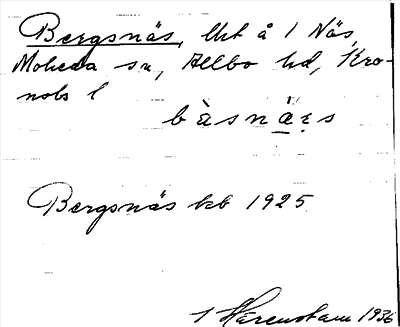 Bergsnäs, Uht å 1 Näs,
Moheda sn, Allbo hd, Kro-
nobs l
bàsnä̱ẹs
Bergsnäs kb 1925
J Harenstam 1936